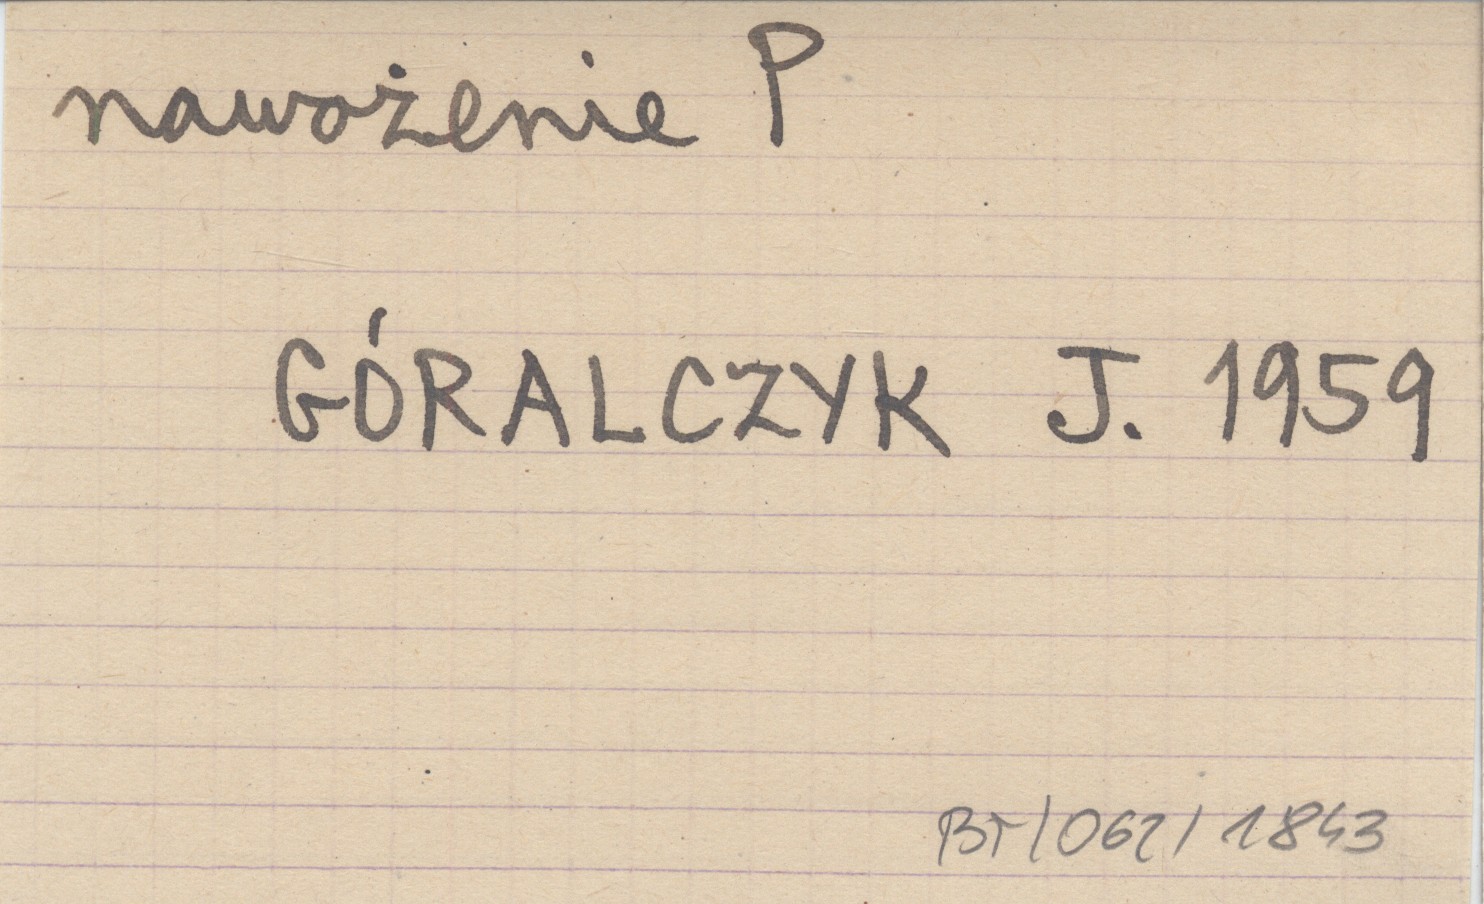 nawożenie P
GÓRALCZYK J. 1959
BT/062/1843